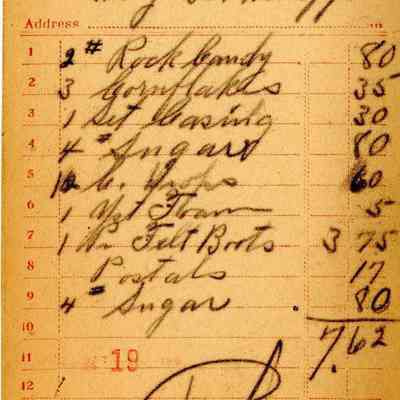 Address
1 2# Rock Candy 80
2 3 Cornflakes 35
3 1 Set Casing 30
4 4# Sugar 80
5 C. 60
6 1 5
7 1 Pr Felt Boots 3 75
8 Postals 17
9 4# Sugar . 80
10 7.62
11 19
12